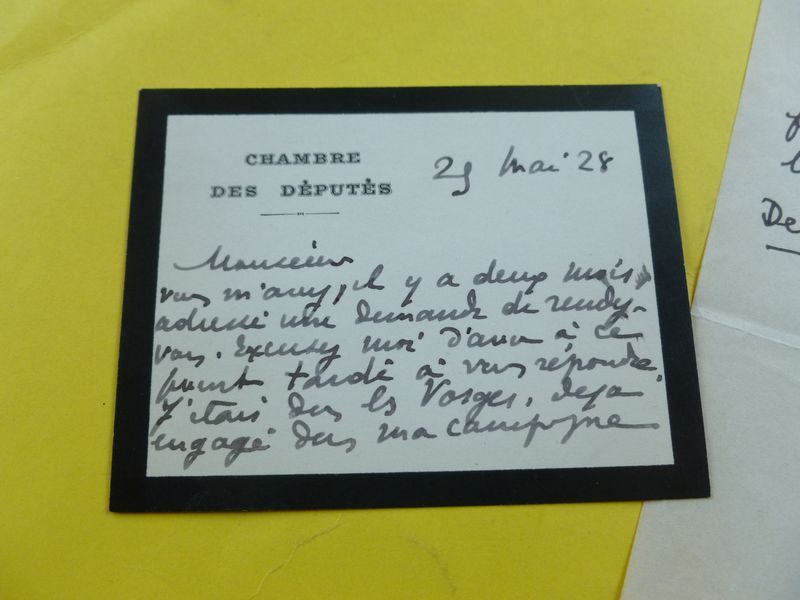 CHAMBRE
DES DÉPUTÉS
29 Mai 28
Monsieur
vous m'avez, il y a deux mois,
adressé une demande de rendez-
vous. Excusez moi d'avoir à ce
point tardé à vous répondre.
J'étais dans les Vosges, déjà
engagé dans ma campagne
De